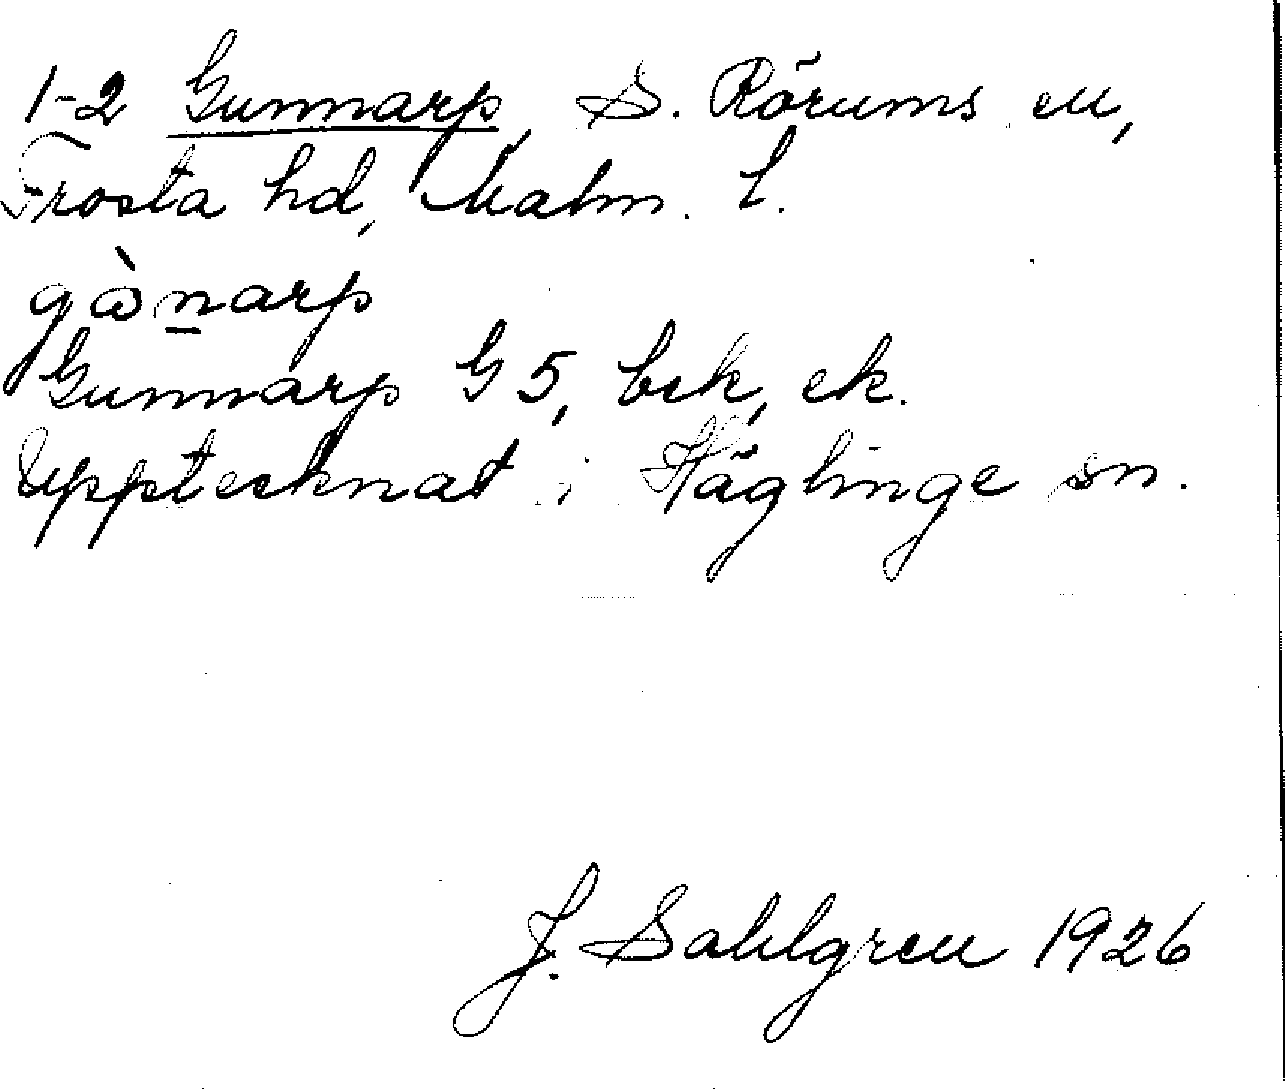 1-2 Gunnarp, S. Rörums sn,
Frosta hd, Malm. l.
gònarp
Gunnarp G 5, bek, ek.
Upptecknat i Häglinge sn.
J. Sahlgren 1926